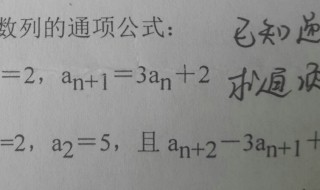 数列的通项公式:
=2, aₙ₊₁=3aₙ+2
=2, a₂=5, 且 aₙ₊₂−3aₙ₊₁+
已知通
求通项